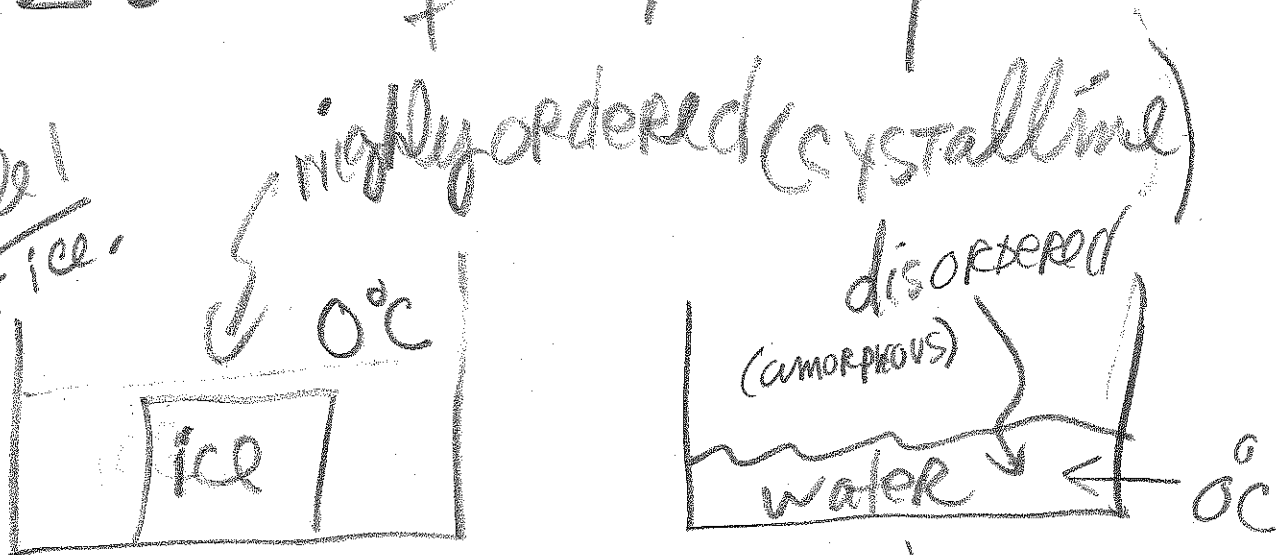 highly ordered (cystalline)
ice.
disordered
(amorphous)
0°C
ice
water
0°C